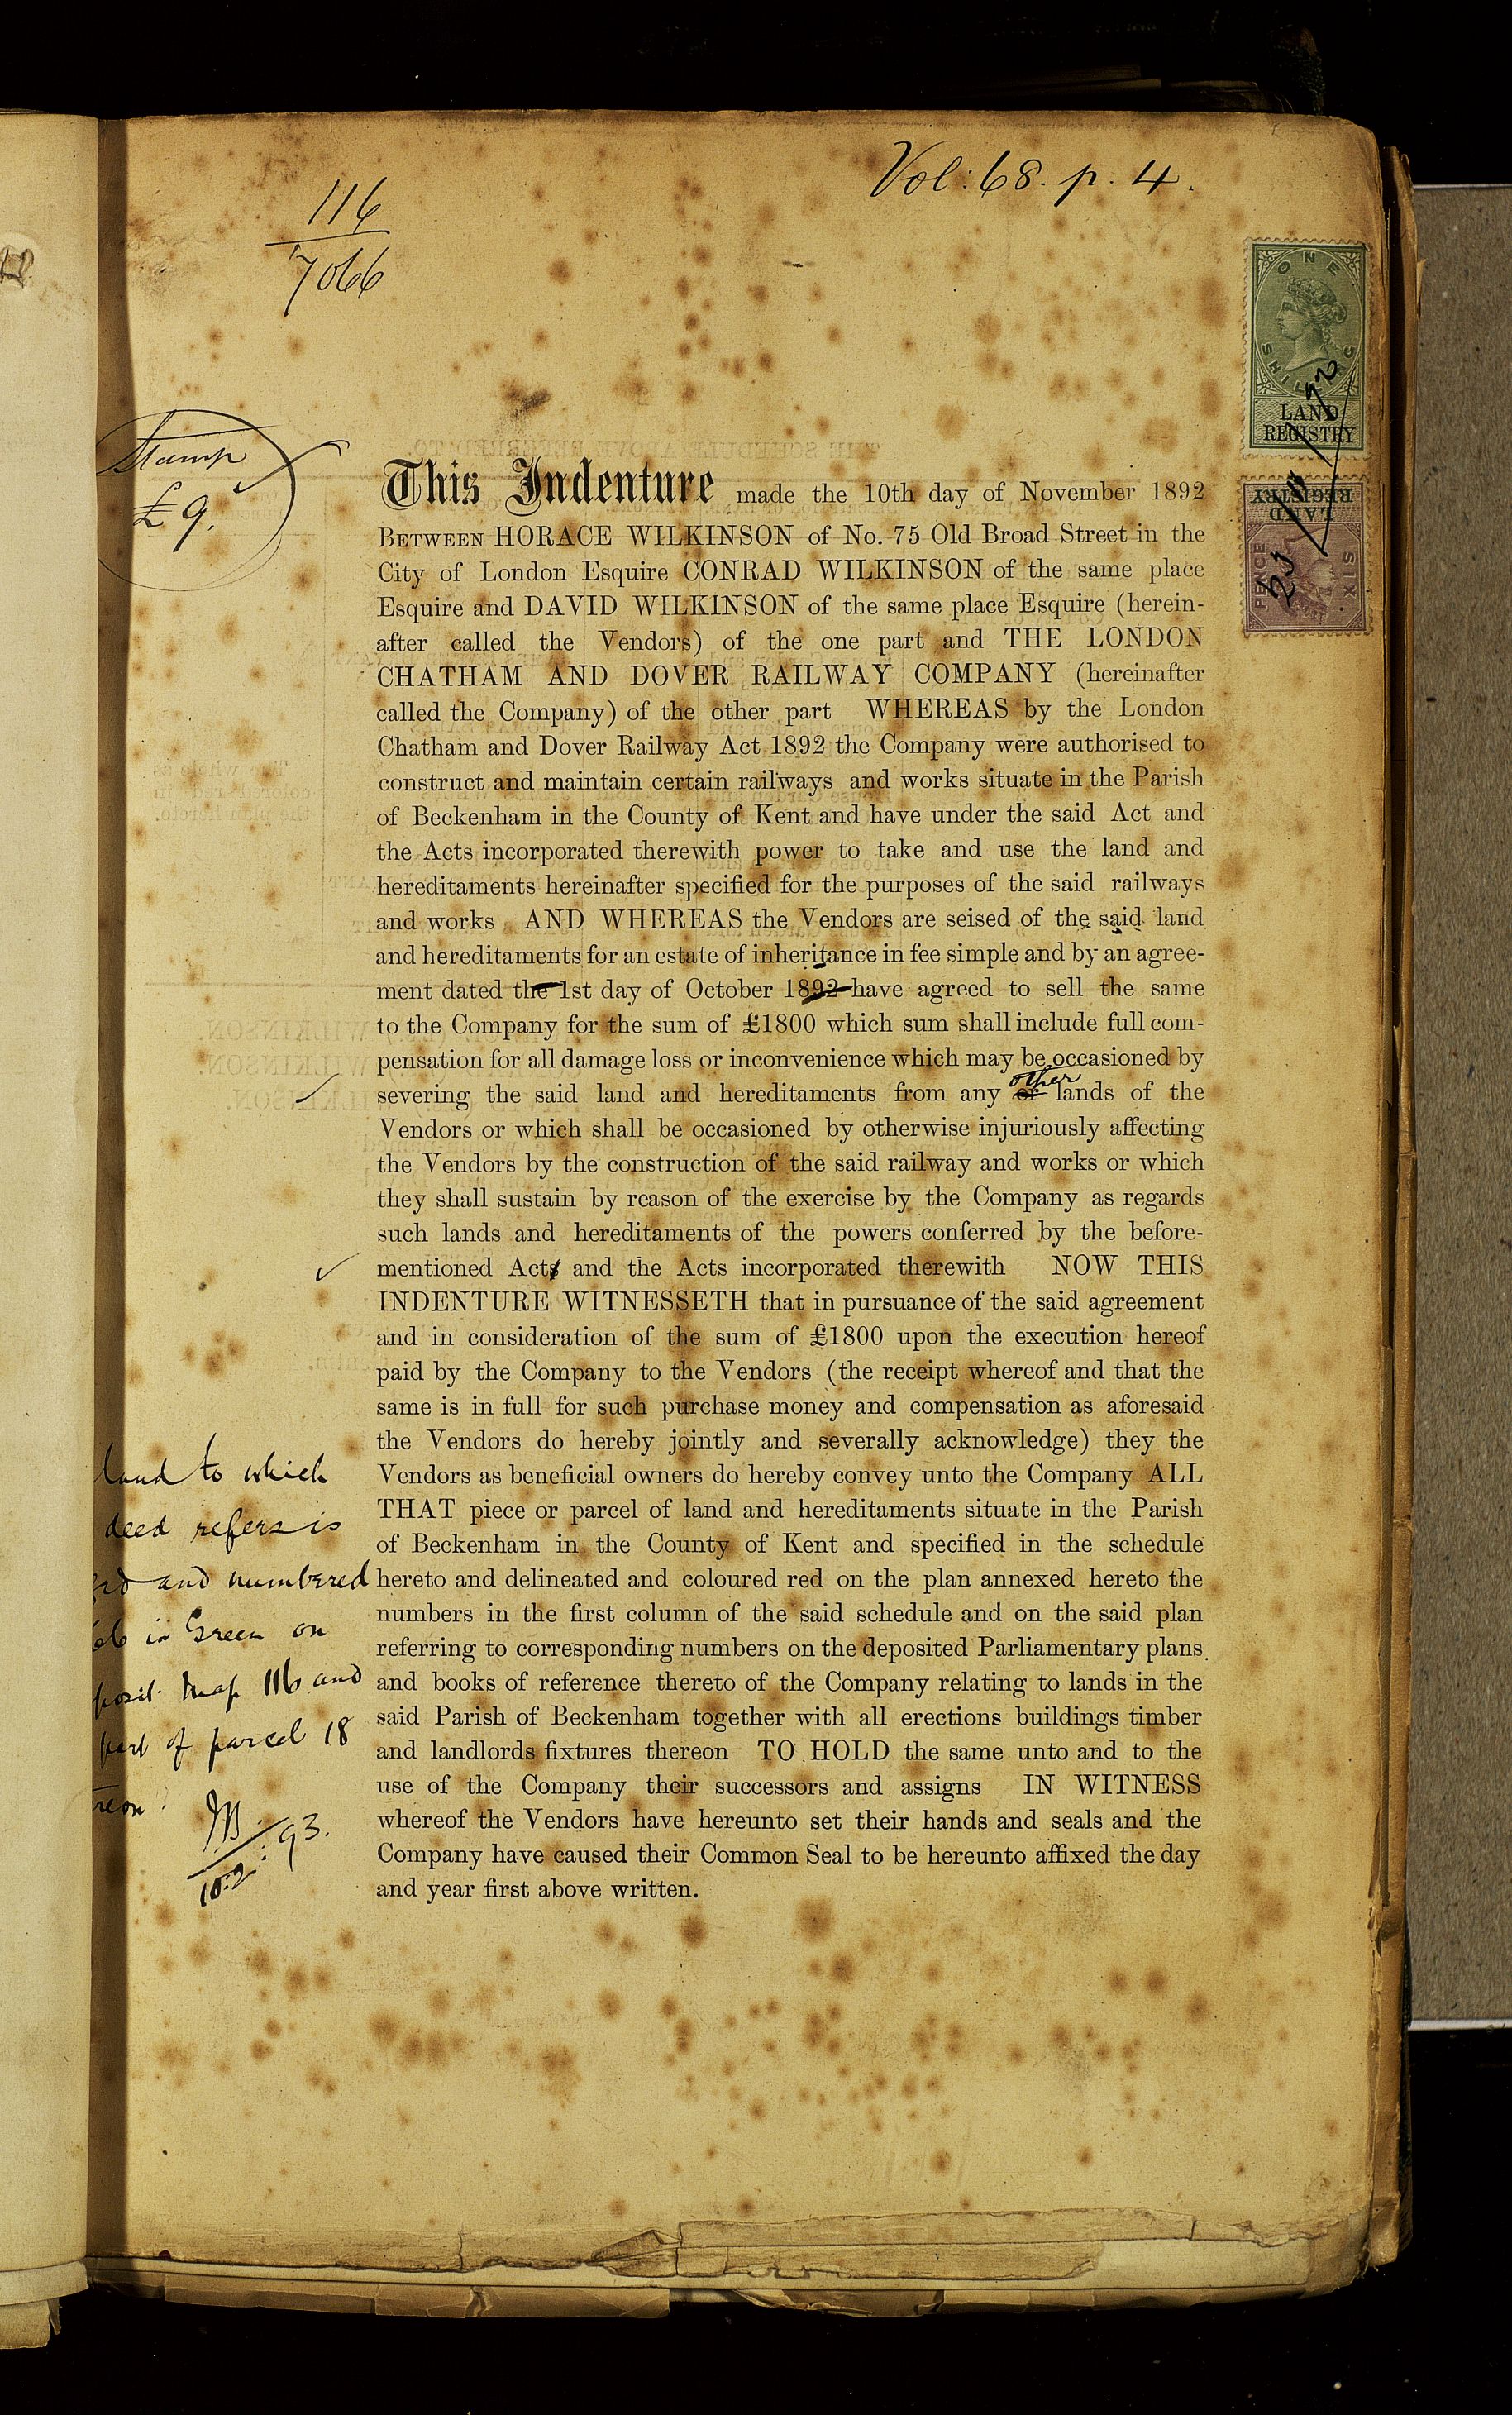 Vol: 68. p. 4.
116
7066
ONE
SHILLING
LAND
REGISTRY
LAND
REGISTRY
SIX
PENCE
Stamp
£9.
This Indenture made the 10th day of November 1892
BETWEEN HORACE WILKINSON of No. 75 Old Broad Street in the
City of London Esquire CONRAD WILKINSON of the same place
Esquire and DAVID WILKINSON of the same place Esquire (herein-
after called the Vendors) of the one part and THE LONDON
CHATHAM AND DOVER RAILWAY COMPANY (hereinafter
called the Company) of the other part WHEREAS by the London
Chatham and Dover Railway Act 1892 the Company were authorised to
construct and maintain certain railways and works situate in the Parish
of Beckenham in the County of Kent and have under the said Act and
the Acts incorporated therewith power to take and use the land and
hereditaments hereinafter specified for the purposes of the said railways
and works AND WHEREAS the Vendors are seised of the said land
and hereditaments for an estate of inheritance in fee simple and by an agree-
ment dated the 1st day of October 1892 have agreed to sell the same
to the Company for the sum of £1800 which sum shall include full com-
pensation for all damage loss or inconvenience which may be occasioned by
severing the said land and hereditaments from any or other lands of the
Vendors or which shall be occasioned by otherwise injuriously affecting
the Vendors by the construction of the said railway and works or which
they shall sustain by reason of the exercise by the Company as regards
such lands and hereditaments of the powers conferred by the before-
mentioned Acts and the Acts incorporated therewith NOW THIS
INDENTURE WITNESSETH that in pursuance of the said agreement
and in consideration of the sum of £1800 upon the execution hereof
paid by the Company to the Vendors (the receipt whereof and that the
same is in full for such purchase money and compensation as aforesaid
the Vendors do hereby jointly and severally acknowledge) they the
Vendors as beneficial owners do hereby convey unto the Company ALL
THAT piece or parcel of land and hereditaments situate in the Parish
of Beckenham in the County of Kent and specified in the schedule
hereto and delineated and coloured red on the plan annexed hereto the
numbers in the first column of the said schedule and on the said plan
referring to corresponding numbers on the deposited Parliamentary plans
and books of reference thereto of the Company relating to lands in the
said Parish of Beckenham together with all erections buildings timber
and landlords fixtures thereon TO HOLD the same unto and to the
use of the Company their successors and assigns IN WITNESS
whereof the Vendors have hereunto set their hands and seals and the
Company have caused their Common Seal to be hereunto affixed the day
and year first above written.
land to which
deed refers is
and numbered
in Green on
Map 116 and
part of parcel 18
10.2.93.